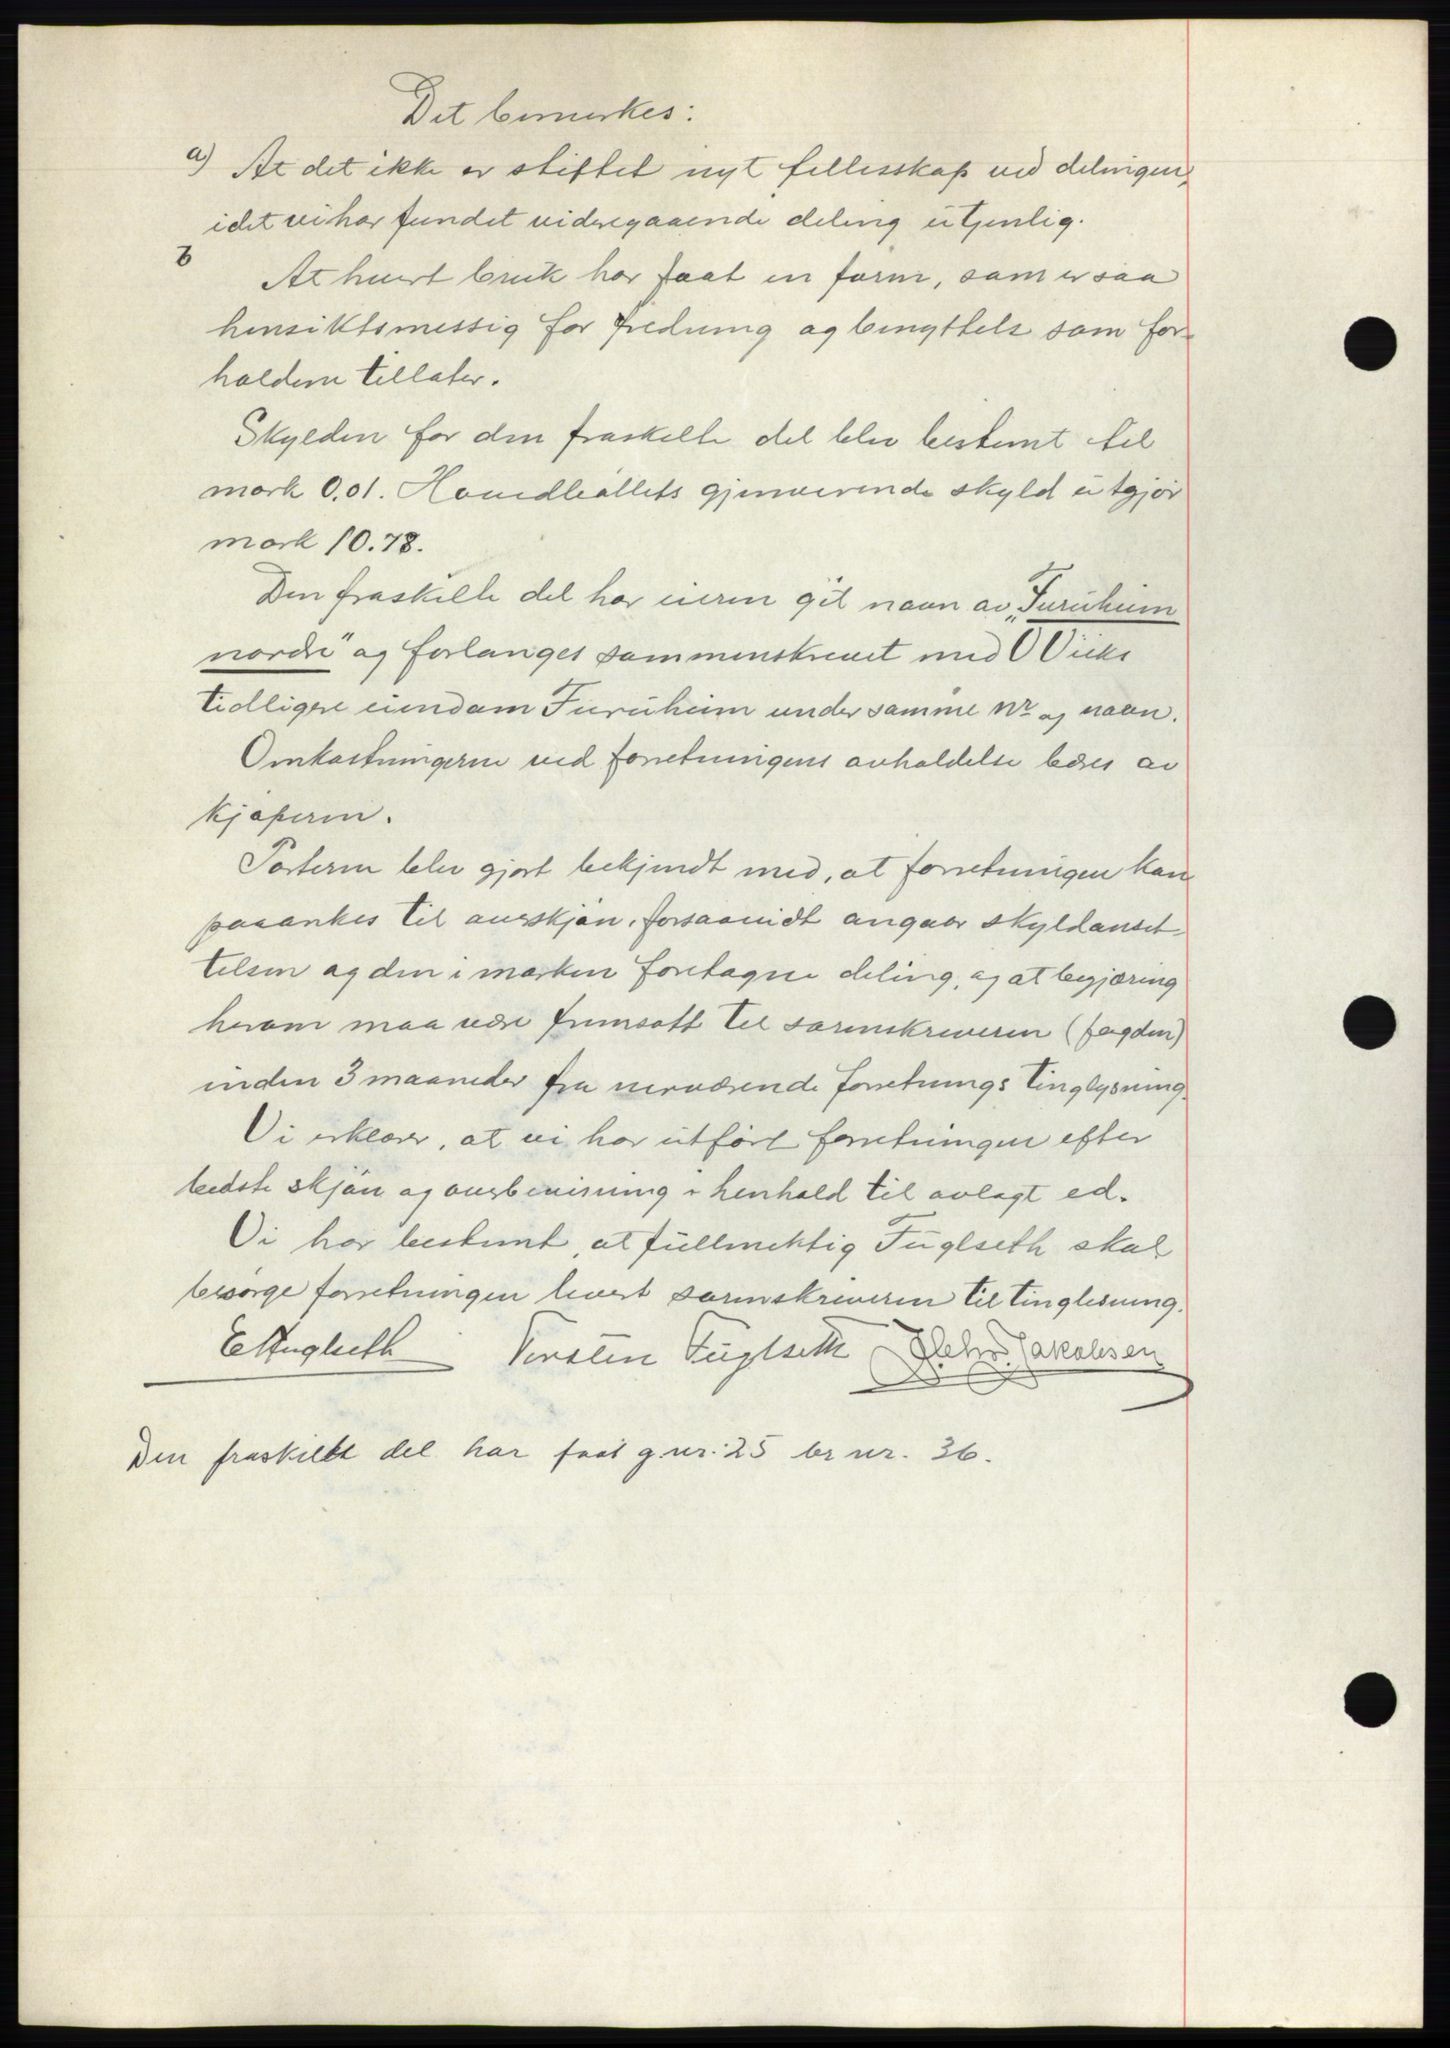 Det bemerkes:
a) At det ikke er stiftet nyt fellesskap ved delingen,
idet vi har fundet videregaaende deling utjenlig.
b
At hvert bruk har faat en form, som er saa
hensiktsmessig for fredning og benyttels som for-
holdene tillater.
Skylden for den fraskilte del blev bestemt til
mark 0.01. Hovedbøllets gjenverende skyld utgjør
mark 10.78.
Den fraskilte del har eieren git navn av „Furuheim
nordre" og forlanges sammenskrevet med O Vicks
tidligere eiendom Furuheim under samme nr og navn.
Omkostningerne ved forretningens avholdelse bæres av
kjøperen.
Parterne blev gjort bekjendt med, at forretningen kan
paaankes til averskjøn, forsaavidt angaar skyldanset-
telsen og den i marken foretagne deling, og at begjæring
herom maa være fremsatt til sorenskriveren (fogden)
inden 3 maaneder fra nerværende forretnings tinglysning.
Vi erklærer, at vi har utført forretningen efter
bedste skjøn og overbevisning i henhold til avlagt ed.
Vi har bestemt, at fullmektig Fuglseth skal
besørge forretningen levert sorenskriveren til tinglesning.
E Fuglseth Torsten Fuglseth Jakobsen
Den fraskilte del har faat g.nr. 25 br nr. 36.